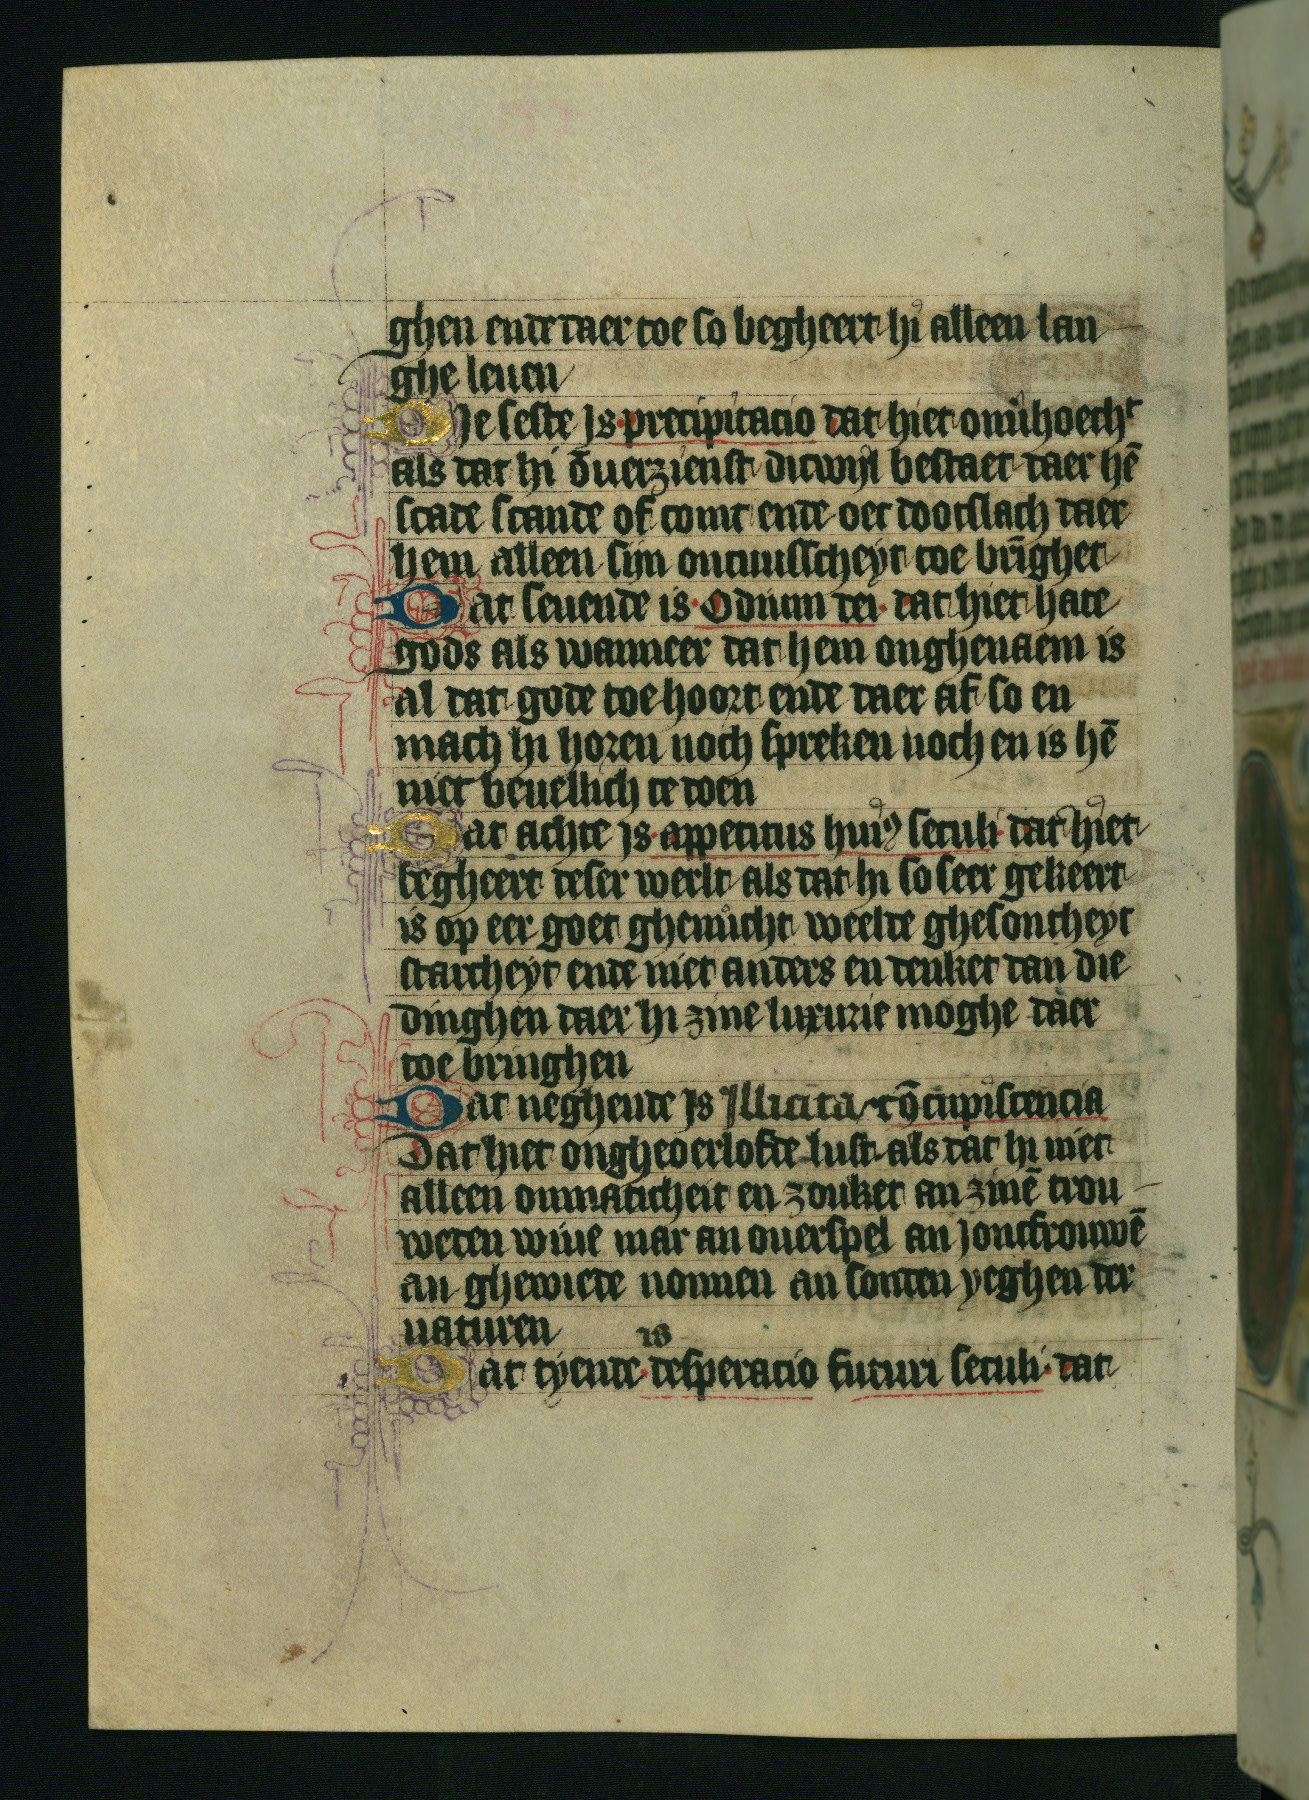 ghen ende daer toe so begheert hi alleen lan
ghe leuen
Die seste Is precipitacio dat hiet onuͦhoecht
als dat hi ōuerzienst dicwijl bestaet daer hē
scade scande of comt ende oec dootslach daer
hem alleen sijn oncuusscheyt toe brīghet
Dat seuende is Odium dei dat hiet hate
gods als wanneer dat hem onghenaem is
al dat gode toe hoort ende daer af so en
mach hi horen noch spreken noch en is hē
niet beuellich te doen
Dat achte Is appetitus huiꝰ seculi dat hiet
begheert deser werlt als dat hi so seer gekeert
is op eer goet ghenuͦcht weelde ghesontheyt
starcheyt ende niet anders en denket dan die
dinghen daer hi zine luxurie moghe daer
toe bringhen
Dat neghende Is Illicita cōcupiscencia
Dat hiet ongheoerlofde lust als dat hi niet
alleen onmaticheit en zouket an zinē trou
weden wiue mar an ouerspel an Joncfrouwē
an ghewiede nonnen an sonden yeghen der
naturen
is
Dat tyende desperacio futuri seculi dat